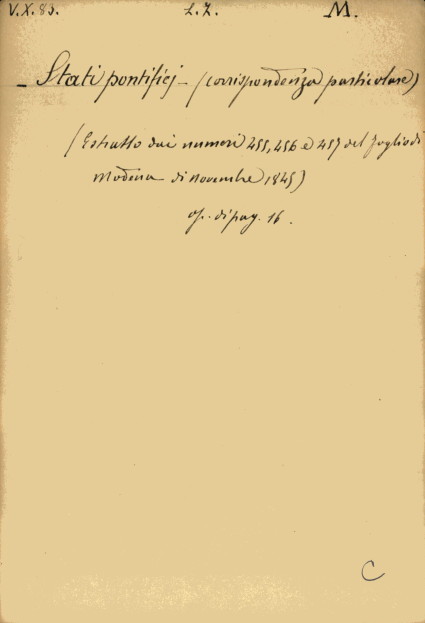 V.X.83. L.Z. M.
— Stati pontificj — (corrispondenza particolare)
(Estratto dai numeri 455, 456 e 457 del foglio di
Modena di novembre 1845)
op. di pag. 16.
C